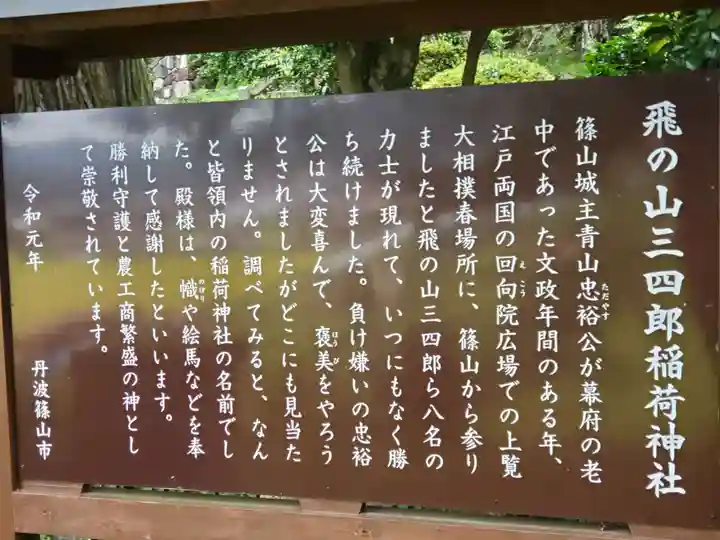 飛の山三四郎稲荷神社
篠山城主青山忠裕公が幕府の老
ただやす
中であった文政年間のある年、
江戸両国の回向院広場での上覧
えこう
大相撲春場所に、篠山から参り
ましたと飛の山三四郎ら八名の
力士が現れて、いつにもなく勝
ち続けました。負け嫌いの忠裕
公は大変喜んで、褒美をやろう
ほうび
とされましたがどこにも見当た
りません。調べてみると、なん
と皆領内の稲荷神社の名前でし
た。殿様は、幟や絵馬などを奉
のぼり
納して感謝したといいます。
勝利守護と農工商繁盛の神とし
て崇敬されています。
令和元年
丹波篠山市